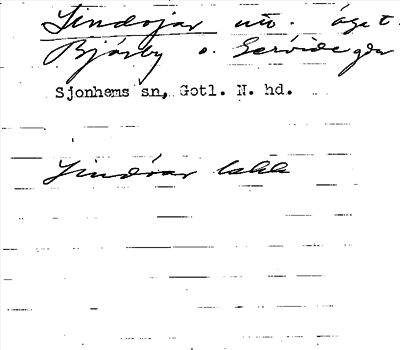 Lindojar utv. ägot.
Bjärby o. Gervide gdr
Sjonhems sn, Gotl. N. hd.
Lindvar